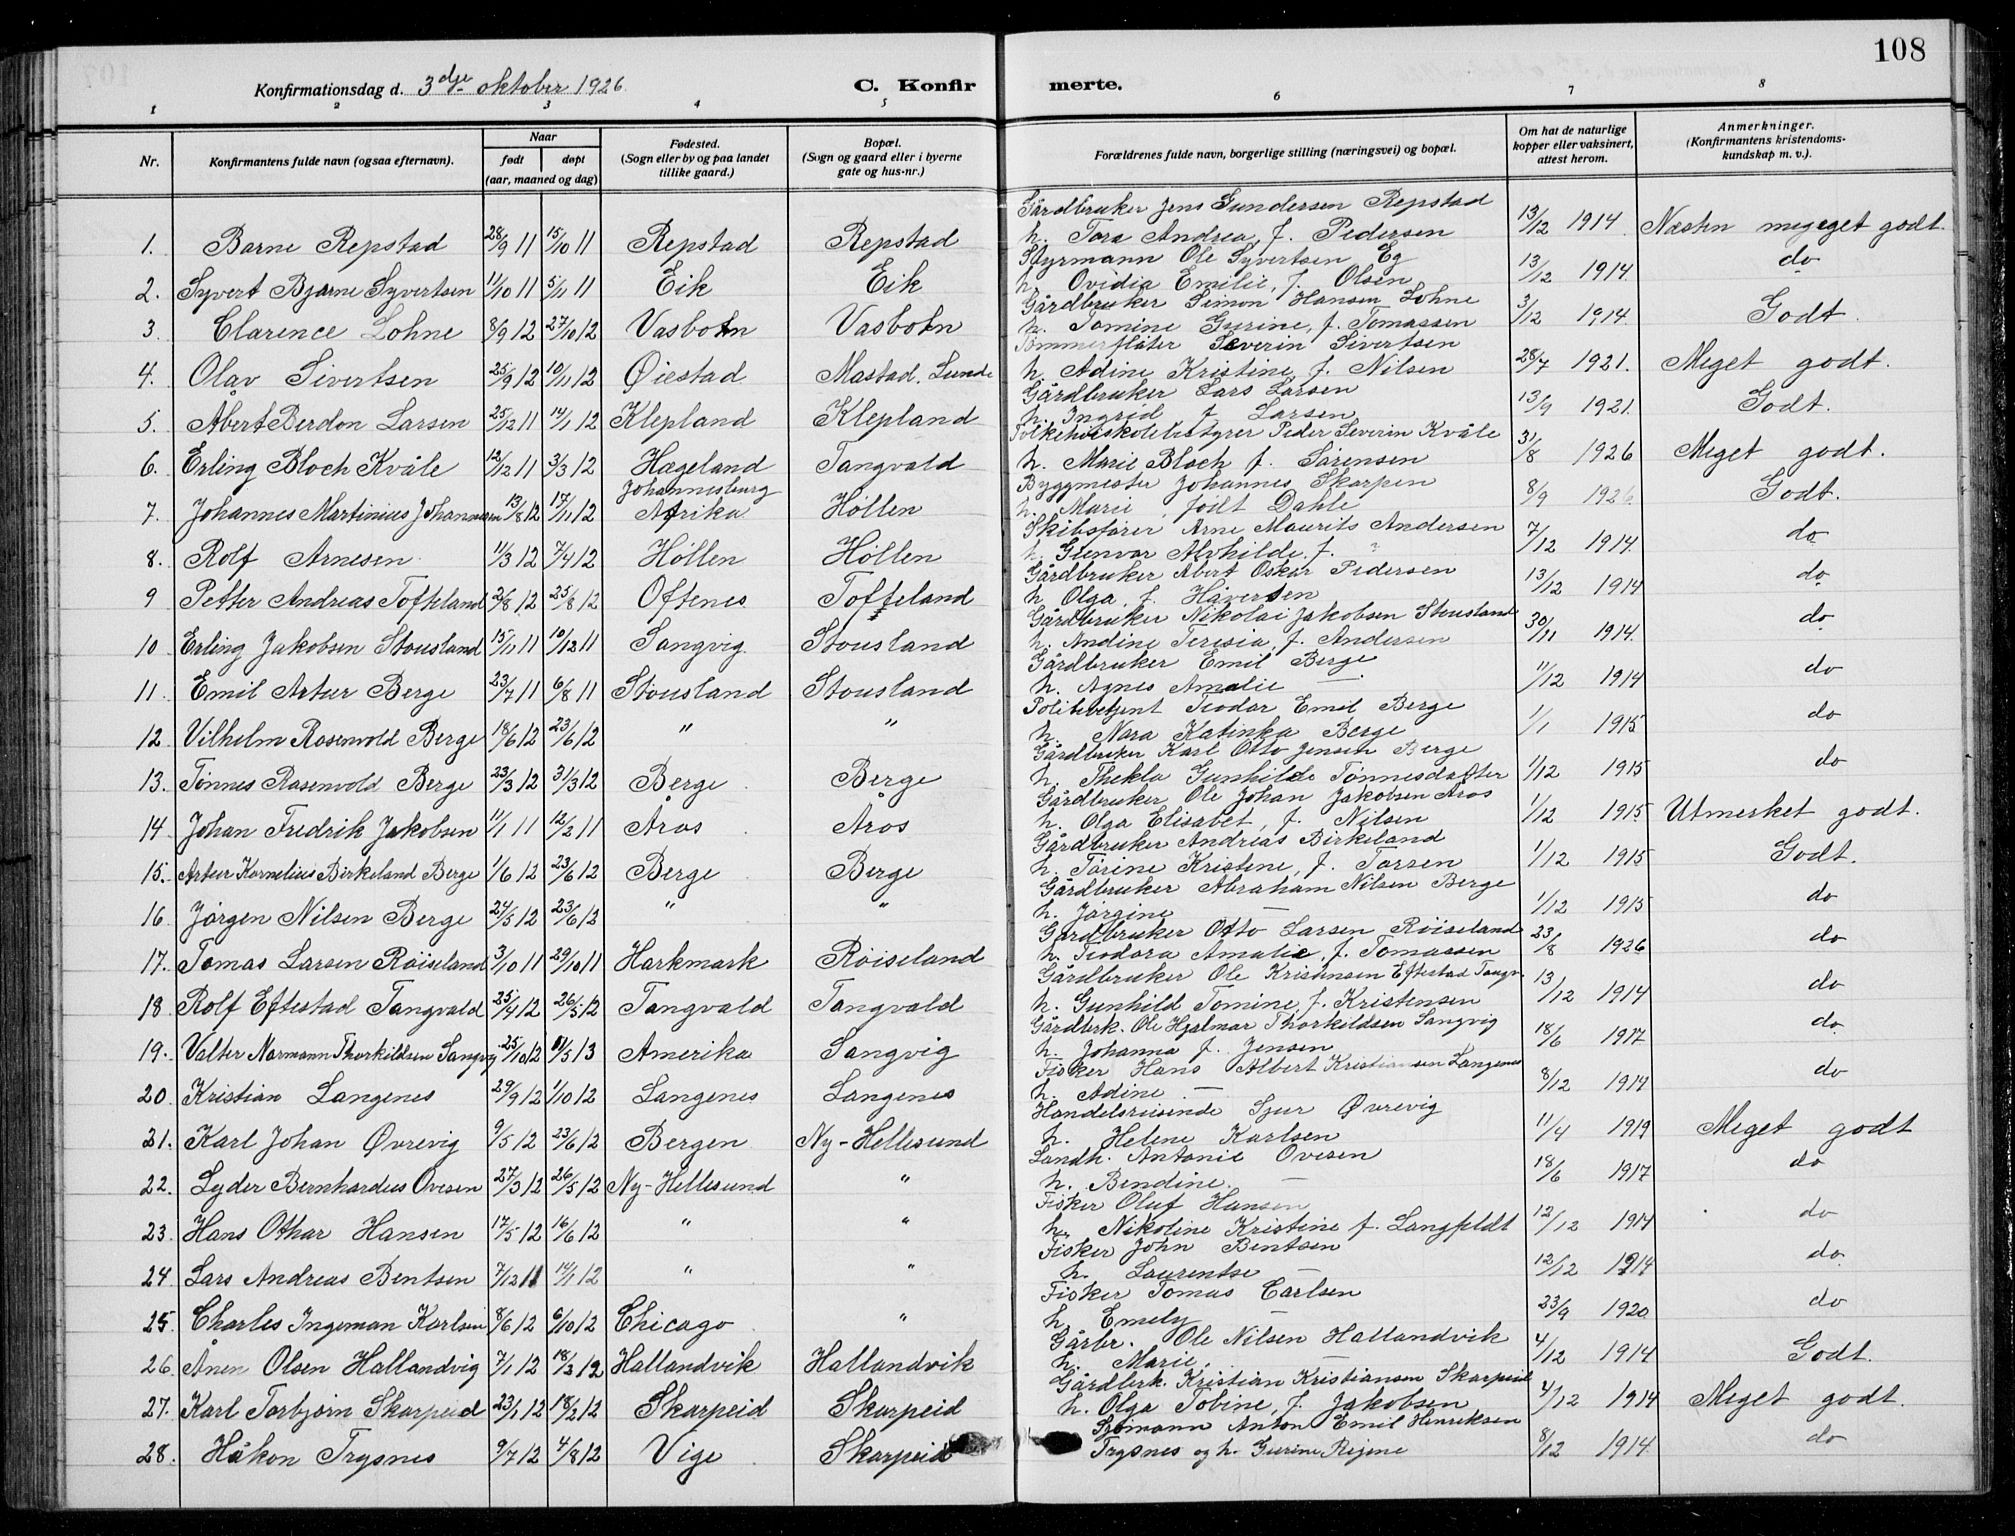 108
Konfirmationsdag d. 3dje oktober 1926.
C. Konfirmerte.
1 2 3 4 5 6 7 8
Nr. Konfirmantens fulde navn (ogsaa efternavn). Naar født døpt (aar, maaned og dag) Fødested. (Sogn eller by og paa landet tillike gaard.) Bopæl. (Sogn og gaard eller i byerne gate og hus-nr.) Forældrenes fulde navn, borgerlige stilling (næringsvei) og bopæl. Om hat de naturlige kopper eller vaksinert, attest herom. Anmerkninger. (Konfirmantens kristendomskundskap m. v.).
Gårdbruker Jens Gundersen Repstad
1. Barne Repstad 28/9 11 15/10 11 Repstad Repstad h. Tora Andrea, f. Pedersen 13/12 1914 Næsten megeget godt.
Styrmann Ole Syvertsen Eg
2. Syvert Bjarne Syvertsen 11/10 11 5/11 11 Eik Eik h. Ovidia Emilie, f. Olsen 13/12 1914. do
Gårdbruker Simon Hansen Lohne
3. Clarence Lohne 8/9 12 27/10 12 Vasbotn Vasbotn h. Tomine Gurine, f. Tomassen 3/12 1914. Godt.
Tømmerfløter Severin Sivertsen
4. Olav Sivertsen 25/9 12 10/11 12 Øiestad Mastad, Lunde h. Adine Kristene, f. Nilsen 28/7 1921. Meget godt.
Gårdbruker Lars Larsen
5. Åbert Berdon Larsen 25/12 11 14/1 12 Klepland Klepland h. Ingrid f. Larsen 13/9 1921. Godt.
Folkehøiskolebestyrer Peder Severin Kvåle
6. Erling Bloch Kvåle 12/12 11 3/3 12 Hægeland Tangvald h. Marie Bloch f. Sørensen 31/8 1926 Meget godt.
Byggmester Johannes Skarpen
7. Johannes Martinius Johannessen 13/8 12 17/11 12 Johannesburg Afrika Høllen h. Marie, født Dahle 8/9 1926. Godt.
Skibsfører Arne Maurits Andersen
8. Rolf Arnesen 11/3 12 7/4 12 Høllen Høllen h. Glenvor Alvhilde, f. ? 7/12 1914. do
Gårdbruker Abert Oskar Pedersen
9 Petter Andreas Tofteland 2/8 12 25/8 12 Oftenes Tofteland h. Olga, f. Håversen 13/12 1914 do
Gårdbruker Nikolai Jakobsen Stousland
10 Erling Jakobsen Stousland 15/11 11 10/12 11 Langvig Stousland h. Andine Teresia, f. Andersen 30/11 1914. do
Gårdbruker Emil Berge
11. Emil Artur Berge 23/7 11 6/8 11 Stousland Stousland h. Agnes Amalie — 11/12 1914 do
Politibetjent Teodor Emil Berge
12. Vilhelm Rosenvold Berge 18/6 12 23/6 12 " " h. Nora Katinka Berge 1/1 1915 do
Gårdbruker Karl Otto Jensen Berge
13. Tønnes Rosenvold Berge 23/3 12 31/3 12 Berge Berge h. Thekla Gunhilde Tønnesdatter 1/12 1915 do
Gårdbruker Ole Johan Jakobsen Åros
14. Johan Fredrik Jakobsen 11/1 11 12/2 11 Åros Åros h. Olga Elisabet, f. Nilsen 1/12 1915 Utmerket godt.
Gårdbruker Andreas Birkeland
15. Artur Kornelius Birkeland Berge 1/6 12 23/6 12 Berge Berge h. Tørine Kristene, f. Torsen 1/12 1915 Godt.
Gårdbruker Abraham Nilsen Berge
16. Jørgen Nilsen Berge 24/5 12 23/6 12 " " h. Jørgine — 1/12 1915 do
Gårdbruker Otto Larsen Røiseland
17. Tomas Larsen Røiseland 3/10 11 29/10 11 Harkmark Røiseland h. Teodora Amalie, f. Tomassen 23/8 1926 do
Gårdbruker Ole Kristensen Eftestad Tangv.
18. Rolf Eftestad Tangvald 25/4 12 26/5 12 Tangvald Tangvald h. Gunhild Tomine, f. Kristensen 13/12 1914 do
Gårdbrk. Ole Hjalmar Thorkildsen Langvig
19. Valter Normann Thorkildsen Langvig 25/10 12 11/5 13 Amerika Langvig h. Johanna f. Jensen 18/6 1917 do
Fisker Hans Albert Kristiansen Langenes
20. Kristian Langenes 29/9 12 1/10 12 Langenes Langenes h. Adine — 8/12 1914 do
Handelsreisende Sjur Øvrevig
21. Karl Johan Øvrevig 9/5 12 23/6 12 Bergen Ny-Hellesund h. Helene Karlsen 11/4 1919 Meget godt
Landh. Antonie Ovesen
22. Lyder Bernhardus Ovesen 27/3 12 26/5 12 Ny-Hellesund " h. Bendine. — 18/6 1917 do
Fisker Oluf Hansen
23. Hans Othar Hansen 17/5 12 16/6 12 " " h. Nikoline Kristine f. Langfeldt 12/12 1914 do
Fisker John Bentsen
24. Lars Andreas Bentsen 7/12 11 14/1 12 " " h. Laurentse — 12/12 1914 do
Fisker Tomas Carlsen
25. Charles Ingeman Karlsen 8/6 12 6/10 12 Chicago " h. Emely — 23/9 1920 do
Gårbr. Ole Nilsen Hallandvik
26. Ånen Olsen Hallandvig 7/1 12 18/2 12 Hallandvik Hallandvik h. Marie. — 4/12 1914 Godt.
Gårdbrk. Kristian Kristiansen Skarpeid
27. Karl Torbjørn Skarpeid 23/1 12 18/2 12 Skarpeid Skarpeid h. Olga Tobine, f. Jakobsen 4/12 1914 Meget godt.
Sjømann Anton Emil Henriksen
28. Håkon Trysnes 9/7 12 4/8 12 Vige Skarpeid Trysnes og h. Gurine Regine 8/12 1914. do